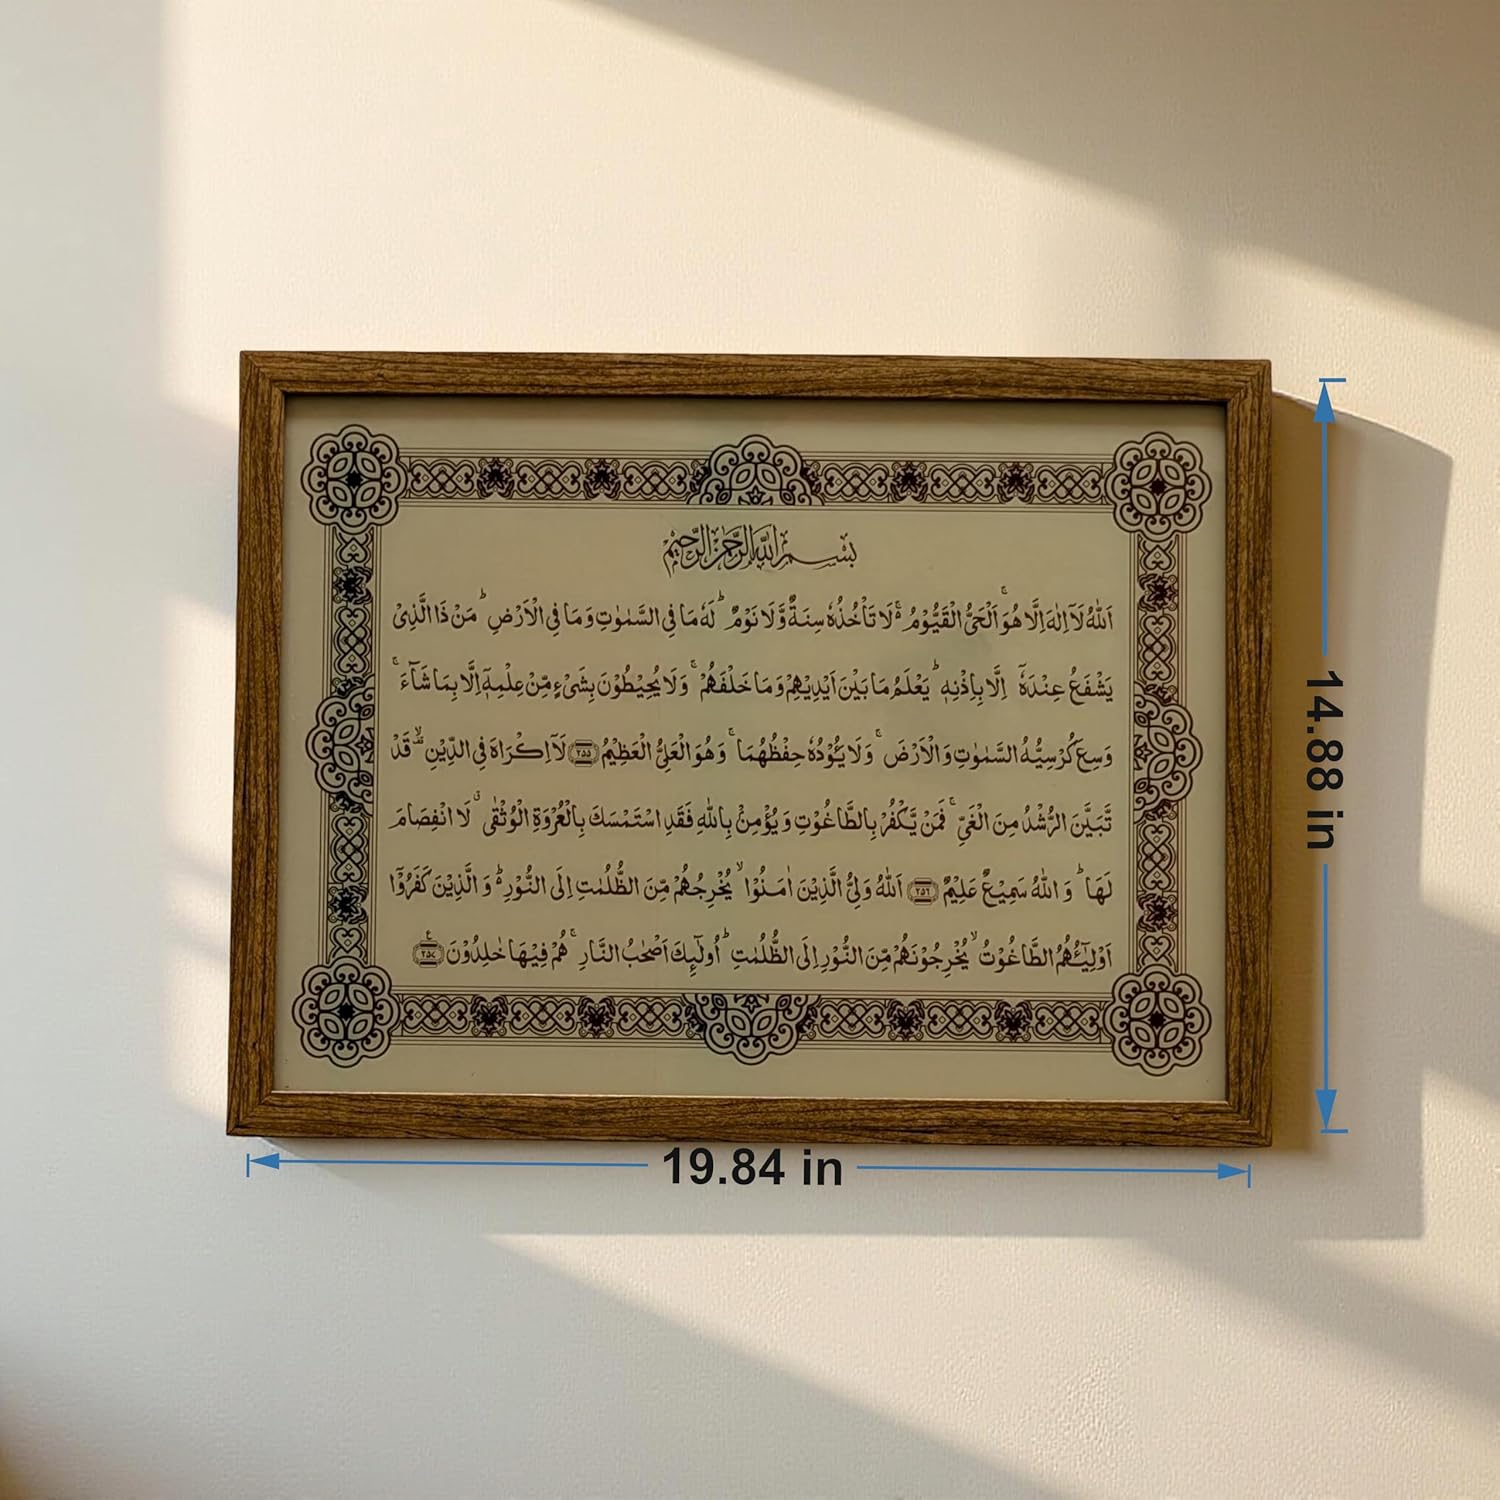 بسم الله الرحمن الرحيم
اَللّٰهُ لَاۤ اِلٰهَ اِلَّا هُوَ ۚ اَلْحَیُّ الْقَیُّوْمُ ۚ۬ لَا تَاْخُذُهٗ سِنَةٌ وَّلَا نَوْمٌ ؕ لَهٗ مَا فِی السَّمٰوٰتِ وَمَا فِی الْاَرْضِ ؕ مَنْ ذَا الَّذِیْ
یَشْفَعُ عِنْدَهٗۤ اِلَّا بِاِذْنِهٖ ؕ یَعْلَمُ مَا بَیْنَ اَیْدِیْهِمْ وَمَا خَلْفَهُمْ ۚ وَلَا یُحِیْطُوْنَ بِشَیْءٍ مِّنْ عِلْمِهٖۤ اِلَّا بِمَا شَآءَ ۚ
وَسِعَ كُرْسِیُّهُ السَّمٰوٰتِ وَالْاَرْضَ ۚ وَلَا یَـُٔوْدُهٗ حِفْظُهُمَا ۚ وَهُوَ الْعَلِیُّ الْعَظِیْمُ ﴿۲۵۵﴾ لَاۤ اِكْرَاهَ فِی الدِّیْنِ ۙ۫ قَدْ
تَّبَیَّنَ الرُّشْدُ مِنَ الْغَیِّ ۚ فَمَنْ یَّكْفُرْ بِالطَّاغُوْتِ وَیُؤْمِنْۢ بِاللّٰهِ فَقَدِ اسْتَمْسَكَ بِالْعُرْوَةِ الْوُثْقٰی ۗ لَا انْفِصَامَ
لَهَا ؕ وَاللّٰهُ سَمِیْعٌ عَلِیْمٌ ﴿۲۵۶﴾ اَللّٰهُ وَلِیُّ الَّذِیْنَ اٰمَنُوْا ۙ یُخْرِجُهُمْ مِّنَ الظُّلُمٰتِ اِلَی النُّوْرِ ؕ۬ وَالَّذِیْنَ كَفَرُوْۤا
اَوْلِیٰٓـُٔهُمُ الطَّاغُوْتُ ۙ یُخْرِجُوْنَهُمْ مِّنَ النُّوْرِ اِلَی الظُّلُمٰتِ ؕ اُولٰٓىِٕكَ اَصْحٰبُ النَّارِ ۚ هُمْ فِیْهَا خٰلِدُوْنَ ﴿۲۵۷﴾
14.88 in
19.84 in